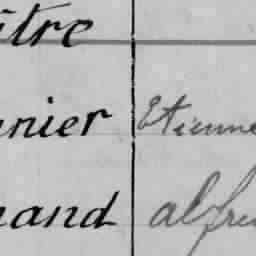 itre
nier Etienne
nand alfre